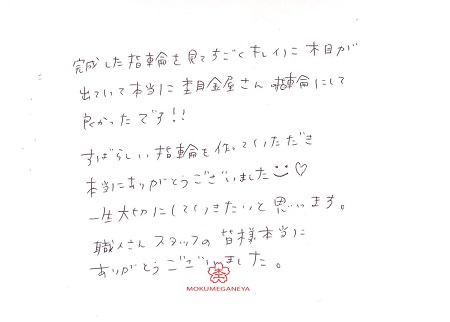 完成した指輪を見てすごくキレイに木目が
出ていて本当に杢目金屋さんの指輪にして
良かったです!!
すばらしい指輪を作っていただき
本当にありがとうございました☺♡
一生大切にしていきたいと思います。
職人さんスタッフの皆様本当に
ありがとうございました。
MOKUMEGANEYA